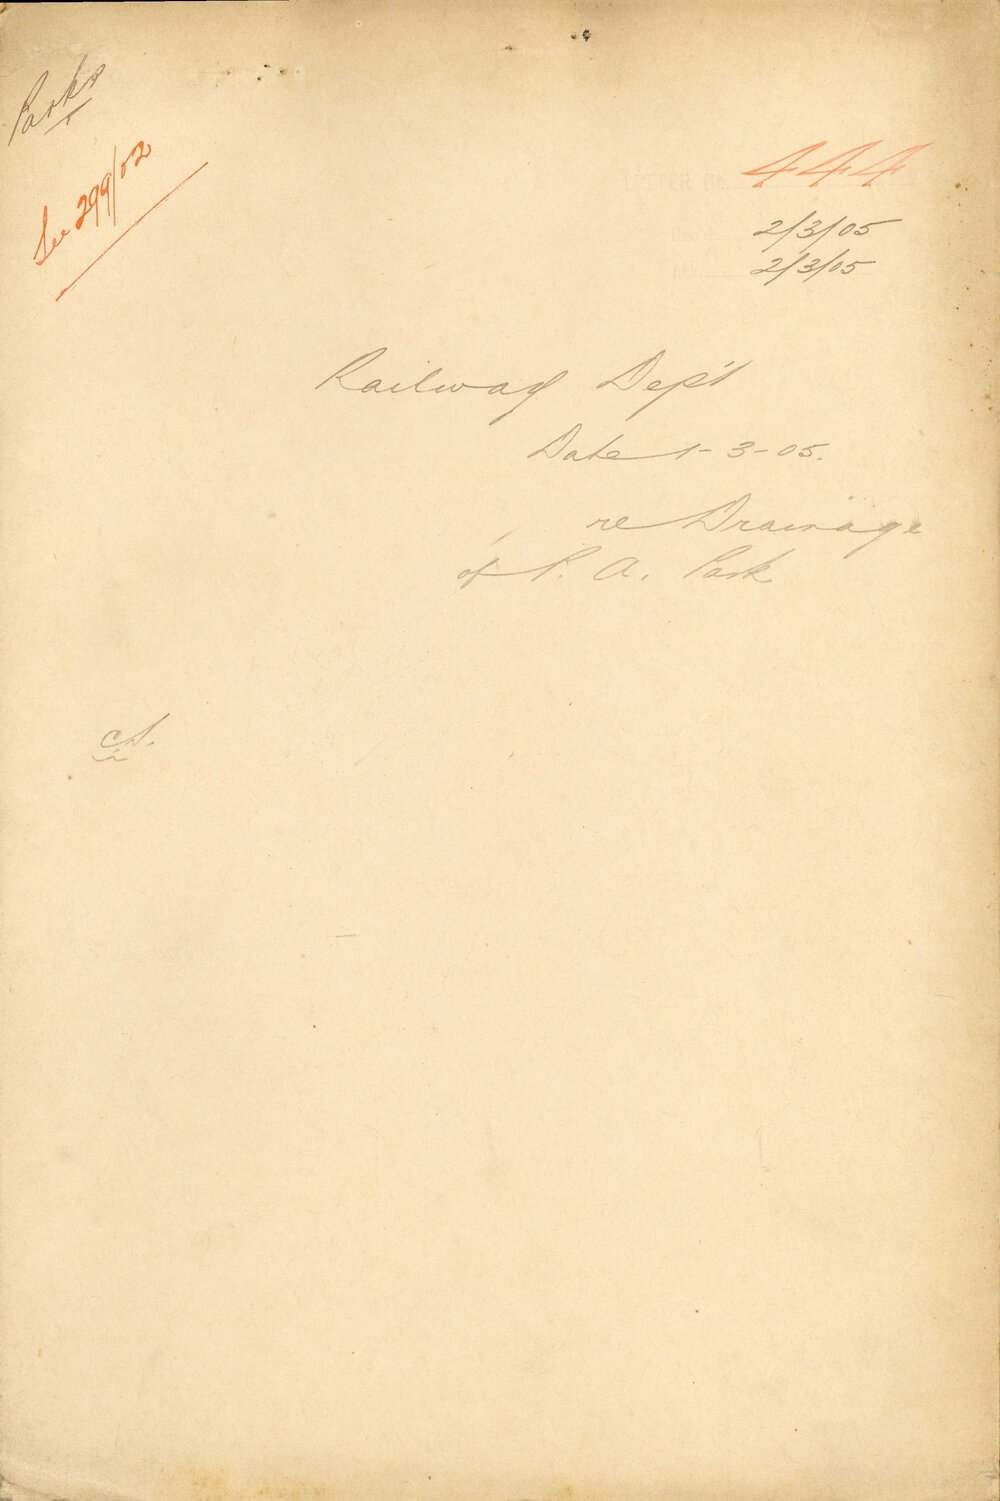 Parks
See 299/02
444
2/3/05
2/3/05
Railway Dep't
Date 1-3-05.
re Drainage
of P. A. Park